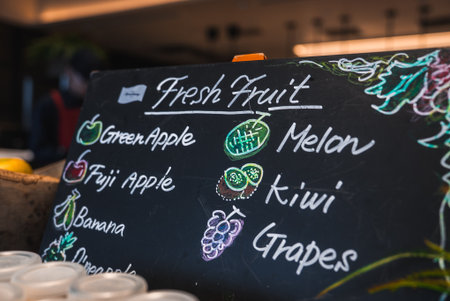 Fresh Fruit
Green Apple
Fuji Apple
Banana
Pineapple
Melon
Kiwi
Grapes